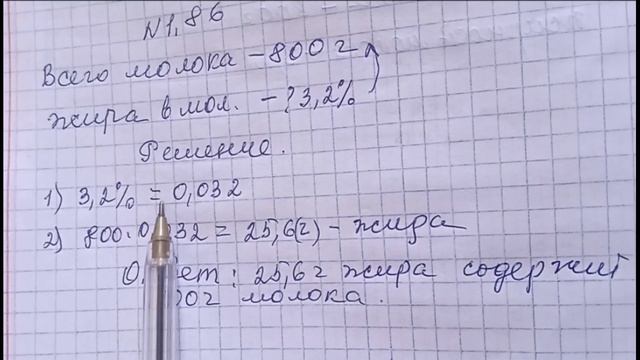 N1,86
Всего молока - 800 г
жира в мол. - ? 3,2%
Решение.
1) 3,2% = 0,032
2) 800 · 0, 32 = 25,6(г) - жира
25,6 г жира содержит
молока.